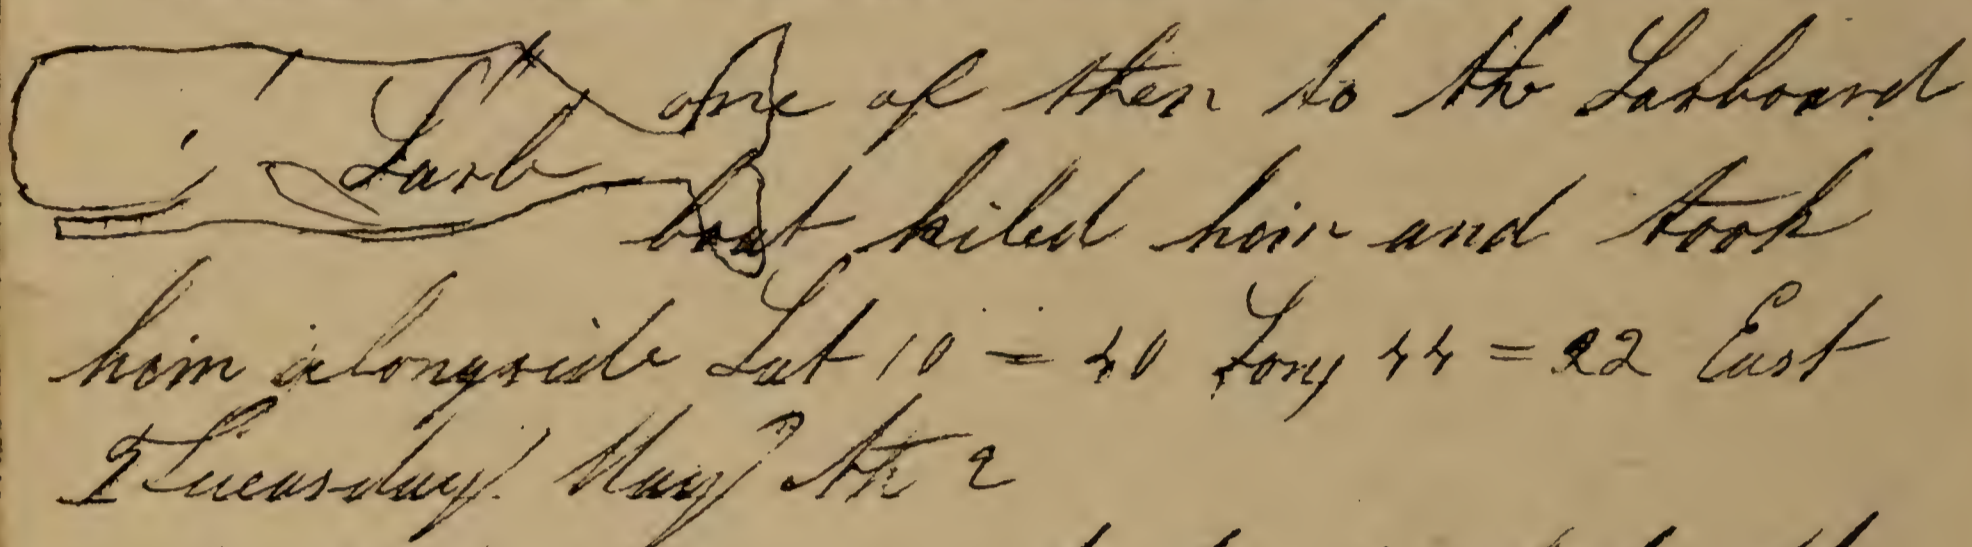 Larb one of then to the Larboard
boat kiled him and took
him alongside Lat 10 = 40 Long 44 = 22 East
Tueasday May the 2